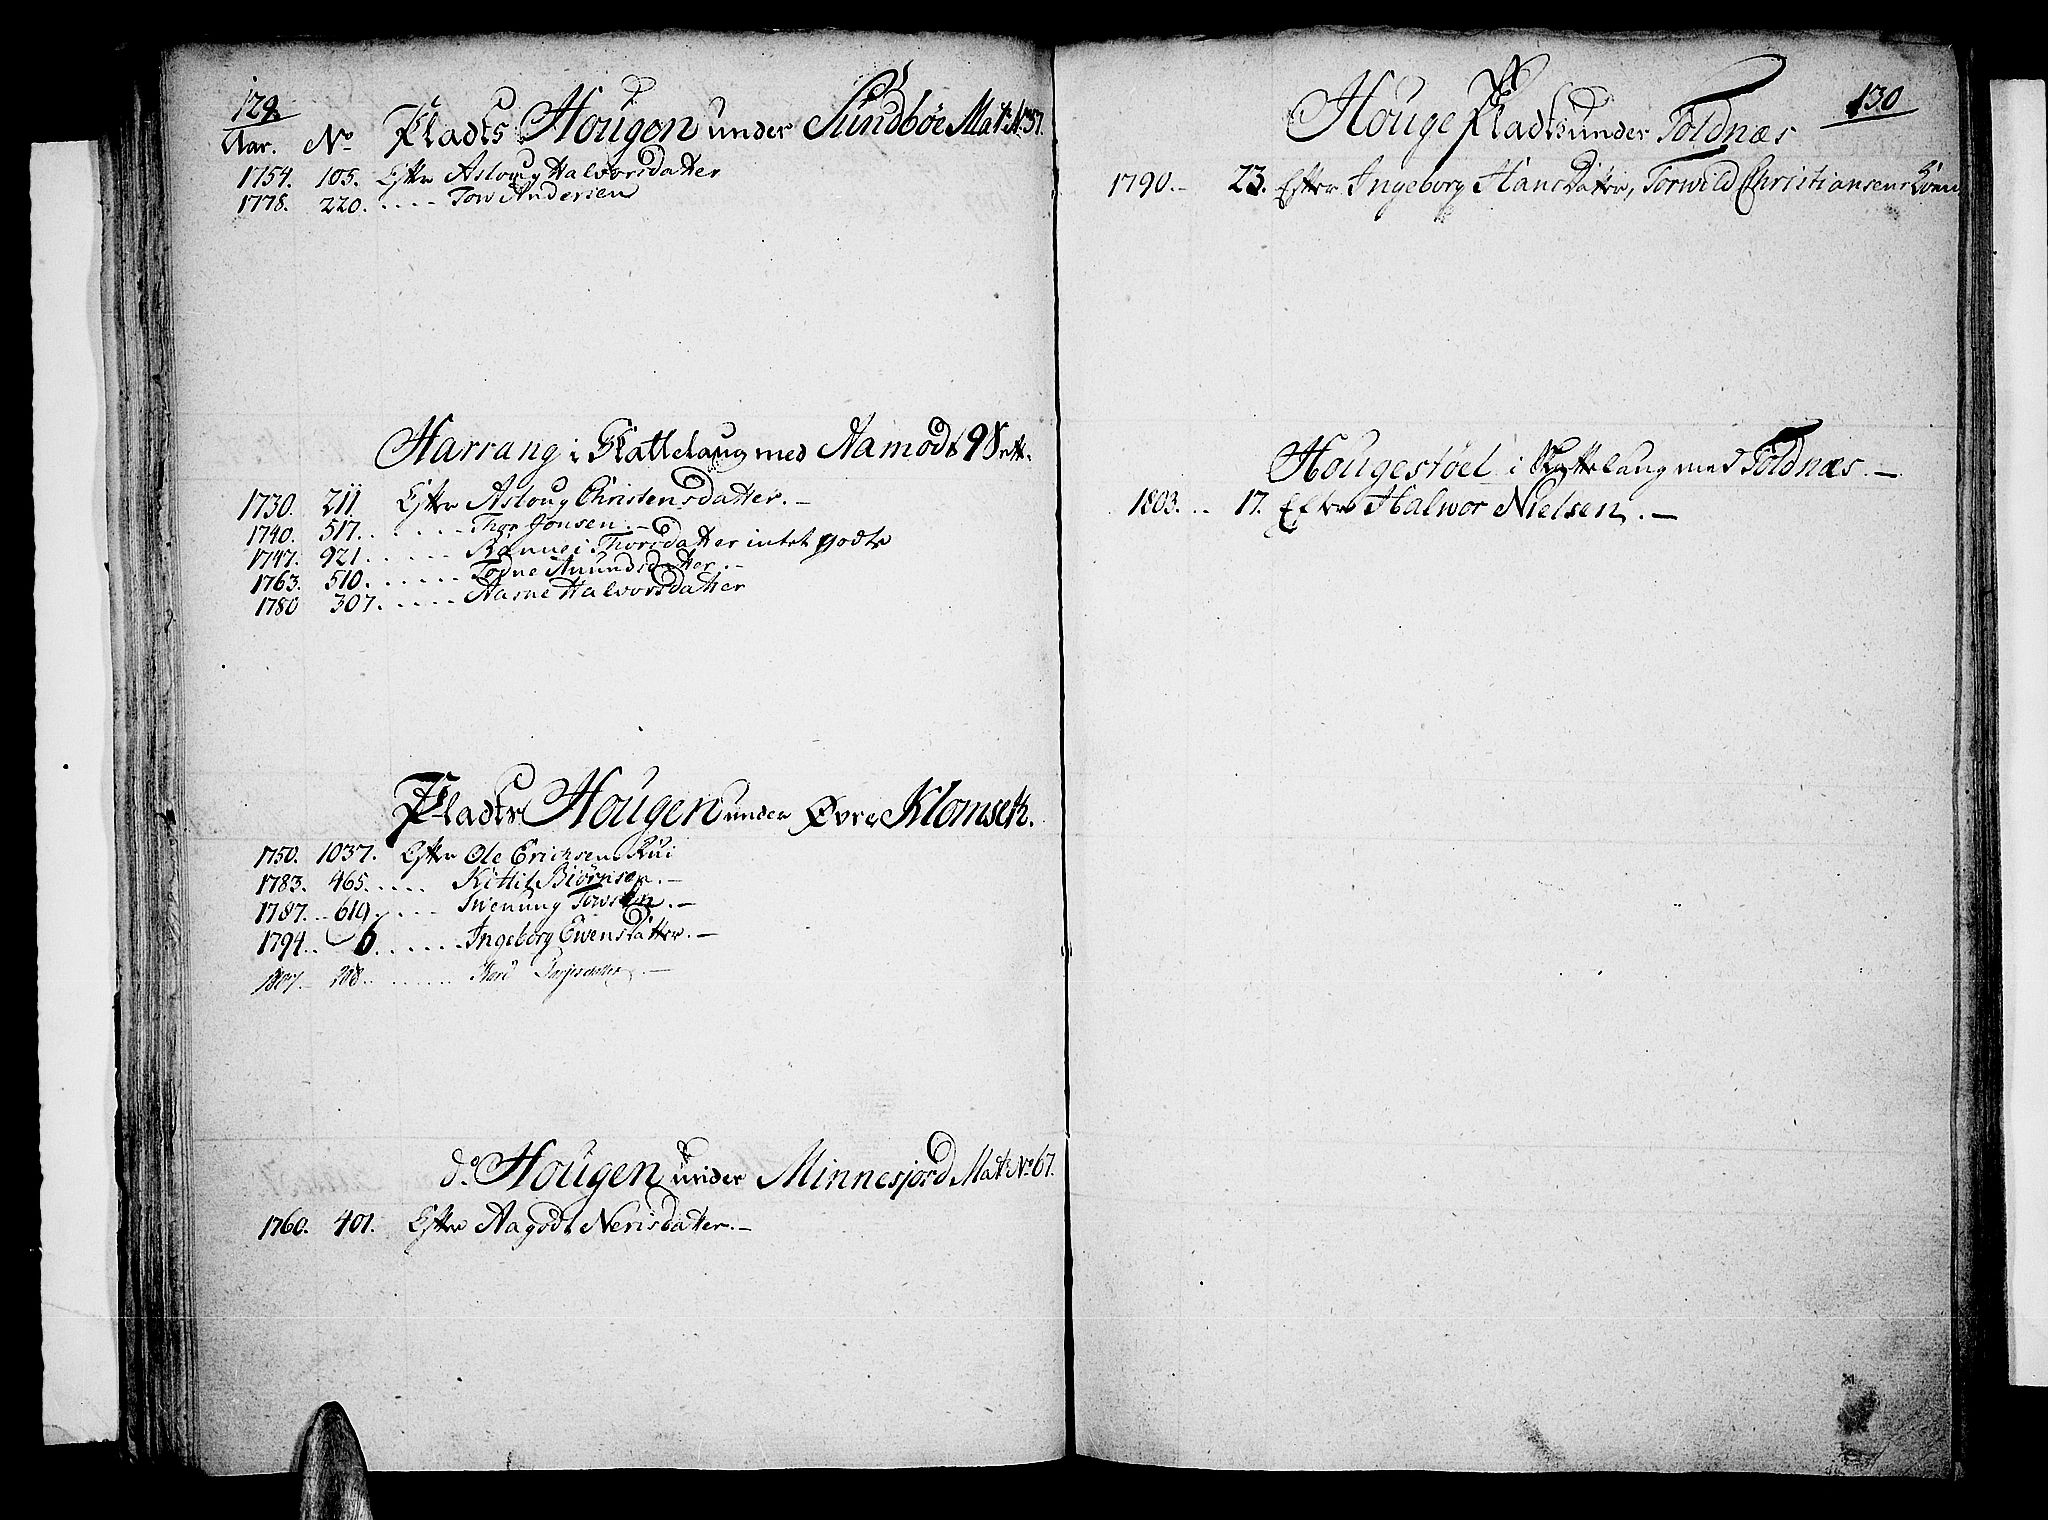 129
Aar. No Pladts Hougen under Sundböe Mat: No 57.
1754. 105. Efter Asloug Halvorsdatter
1778. 220. .... Tow Andersen
Harrang i Skattelaug med Aamodt 98
1730. 211 Efter Asloug Christensdatter. —
1740. 517. ...... Thor Jonsen. —
1747. 921. ...... Thorsdatter intet godts
1763. 510. ...... Amundsdatter. —
1780 307. ..... Aasne Halvorsdatter
Pladts Hougen under Øvre Klomseth.
1750. 1037. Efter Ole Erichsen Rui
1783. 465. ..... Kittil Biörnsen. —
1787. 619. .... Swenung Towsen. —
1794. 6. ..... Ingeborg Ewensdatter. —
1807. 208. ......
do Hougen under Minnesjord Mat: No 67.
1760. 401. Efter Aagodt Nerisdatter. —
130
Houge Plads under Toldnæs
1790. — 23. Efter Ingeborg Hansdatter, Torwild Christiansens Kone
Hougestöel i Skattelaug med Toldnæs. —
1803. .. 17. Efter Halwor Nielsen. —